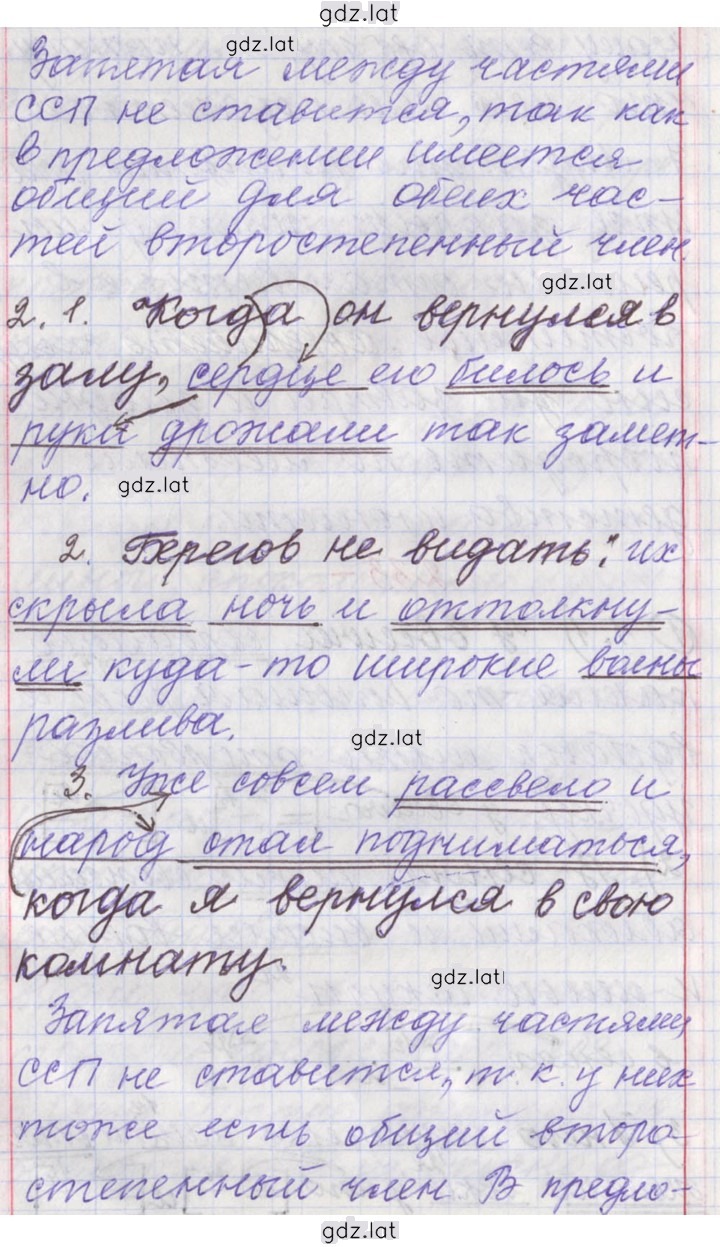 gdz.lat
gdz.lat
Запятая между частями
ССП не ставится, так как
в предложении имеется
общий для обеих час-
тей второстепенный член.
gdz.lat
2. 1. Когда он вернулся в
залу, сердце его билось и
руки дрожали так замет-
но. gdz.lat
2. Берегов не видать: их
скрыла ночь и оттолкну-
ли куда-то широкие волны
разлива. gdz.lat
3. Уже совсем рассвело и
народ стал подниматься,
когда я вернулся в свою
комнату. gdz.lat
Запятая между частями
ССП не ставится, т. к. у них
тоже есть общий второ-
степенный член. В предло-
gdz.lat